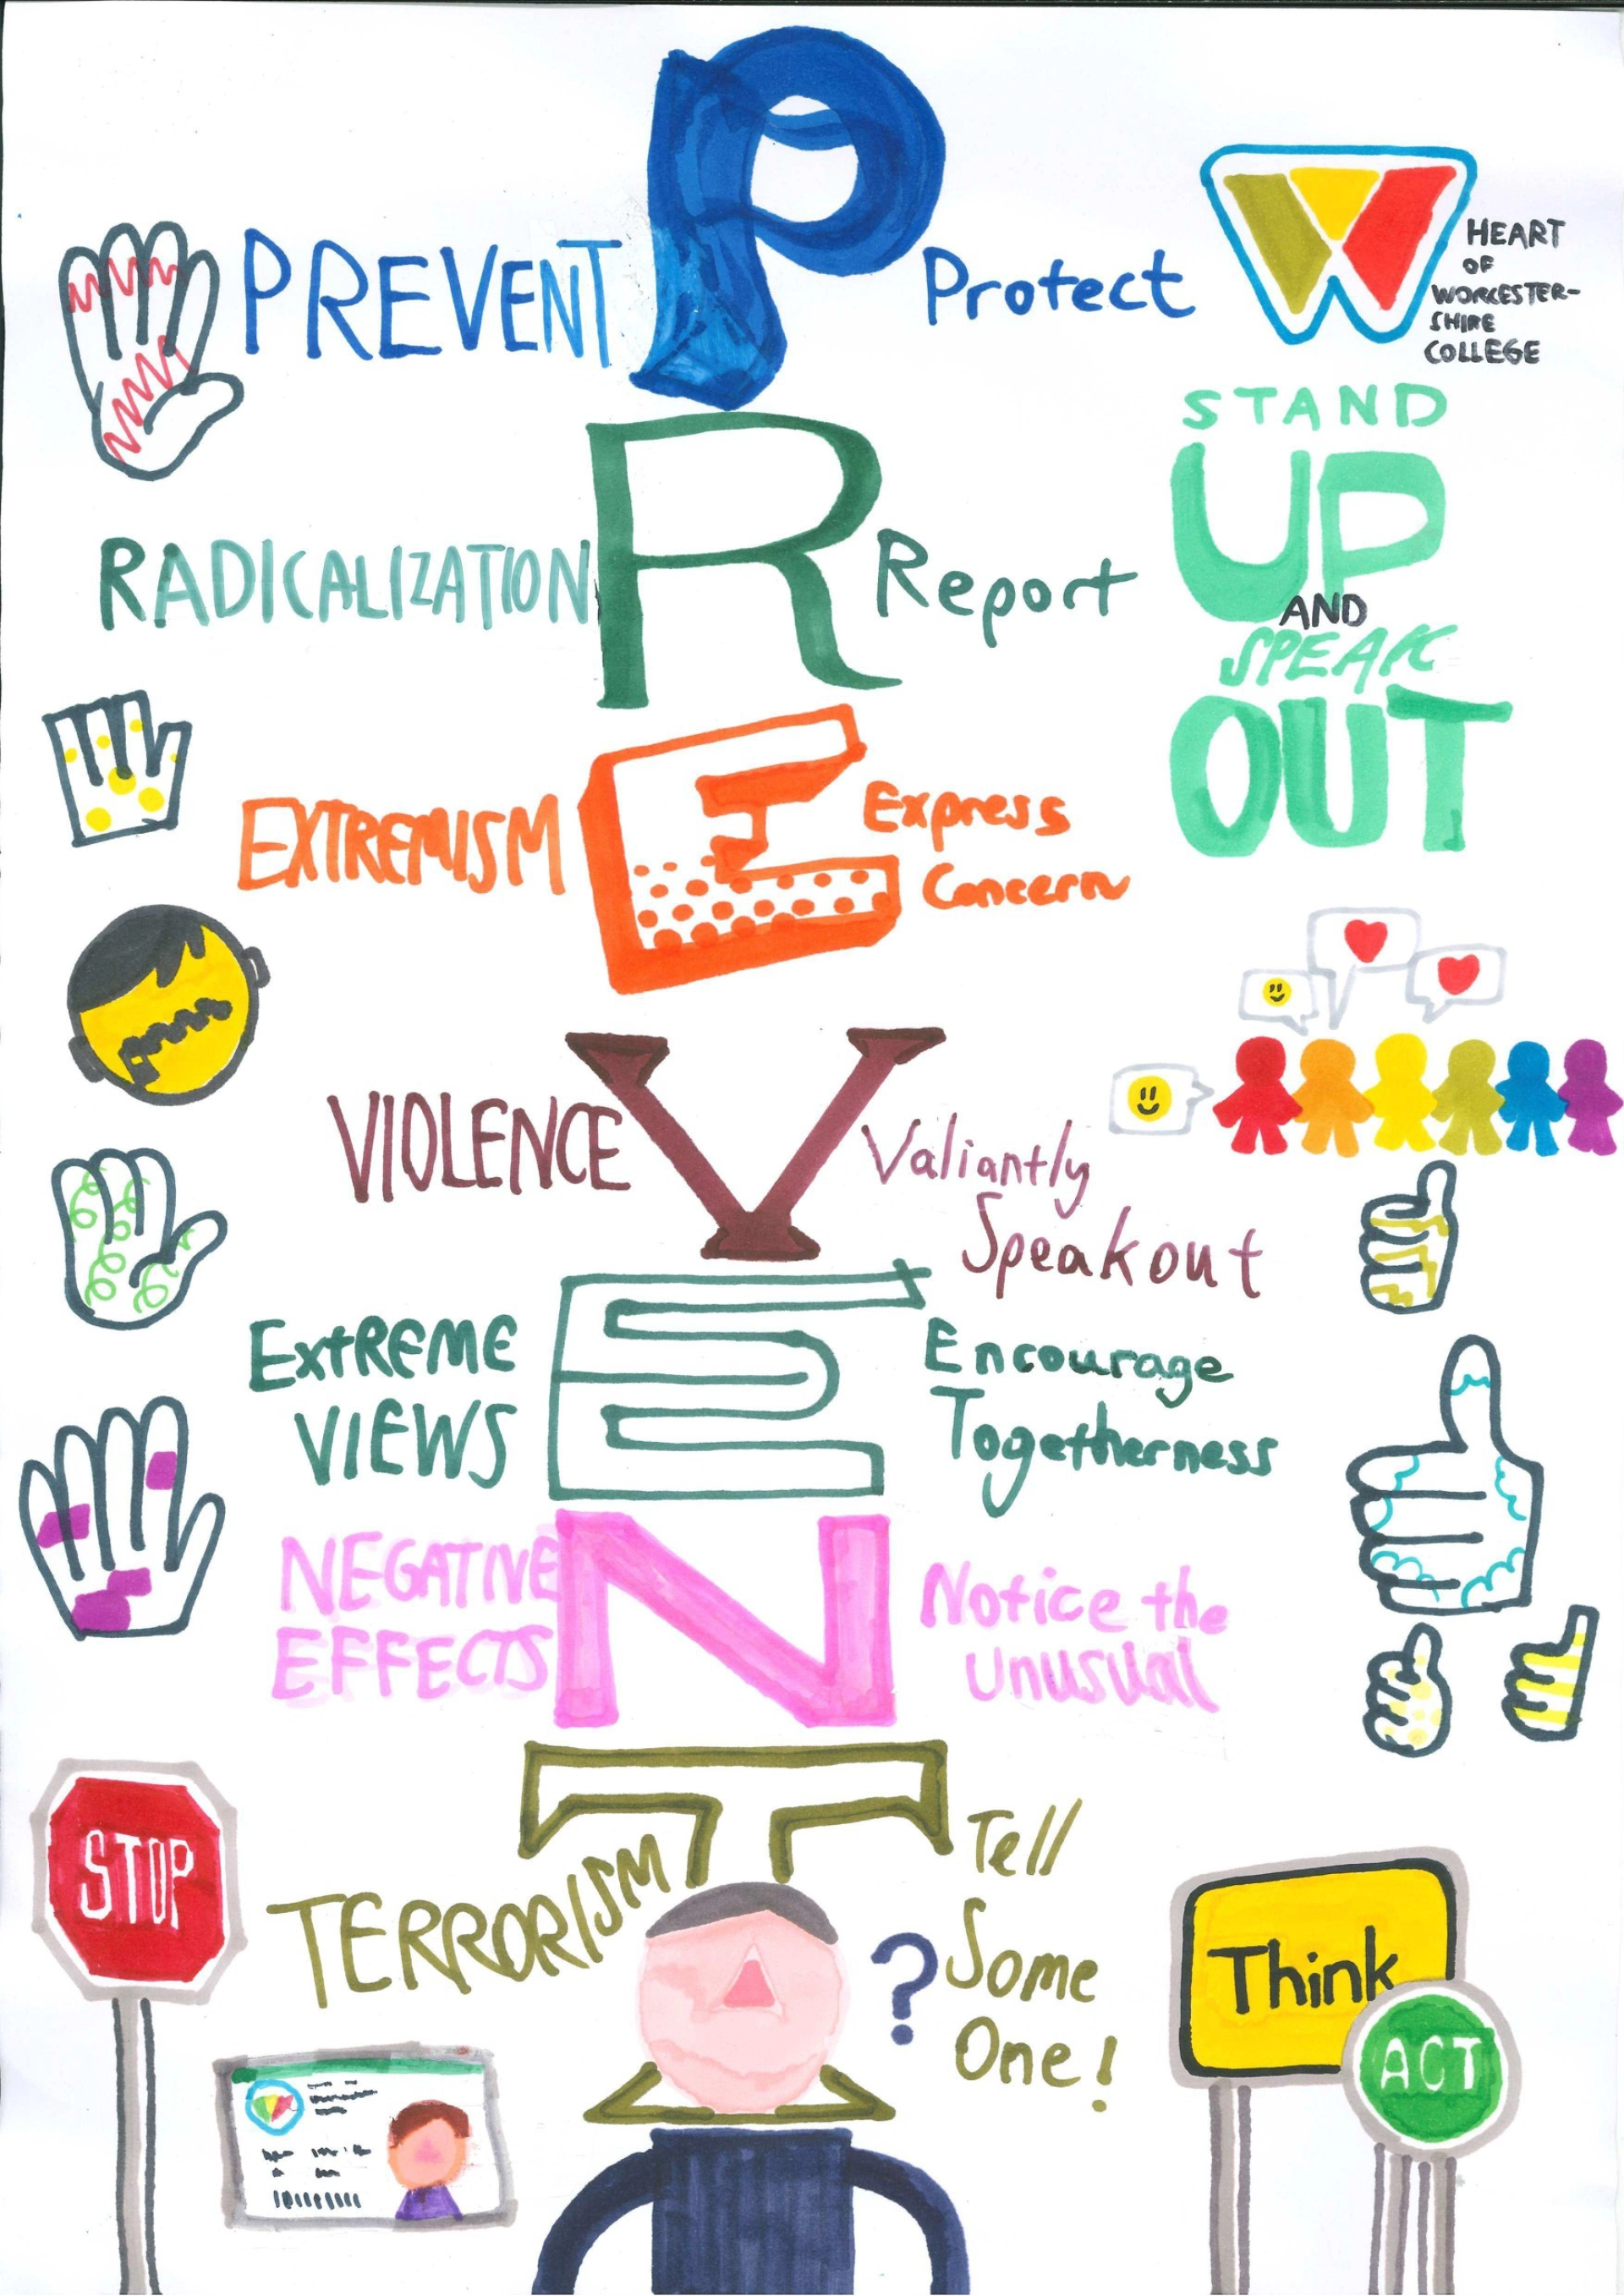 P
PREVENT
Protect
HEART
OF
WORCESTER-
SHIRE
COLLEGE
R
RADICALIZATION
Report
STAND
UP
AND
SPEAK
OUT
E
EXTREMISM
Express
Concern
V
VIOLENCE
Valiantly
Speak out
E
ExtREME
VIEWS
Encourage
Togetherness
N
NEGATIVE
EFFECTS
Notice the
Unusual
T
TERRORISM
Tell
Some
One!
?
STOP
Think
ACT